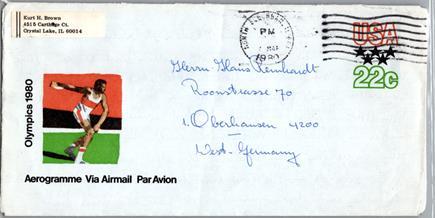 Kurt H. Brown
4515 Carthage Ct.
Crystal Lake, IL 60014
PM
1980
USA
22c
Herrn Hans Reinhardt
Roonstrasse 70
1. Oberhausen 4200
West-Germany
Olympics 1980
Aerogramme Via Airmail Par Avion